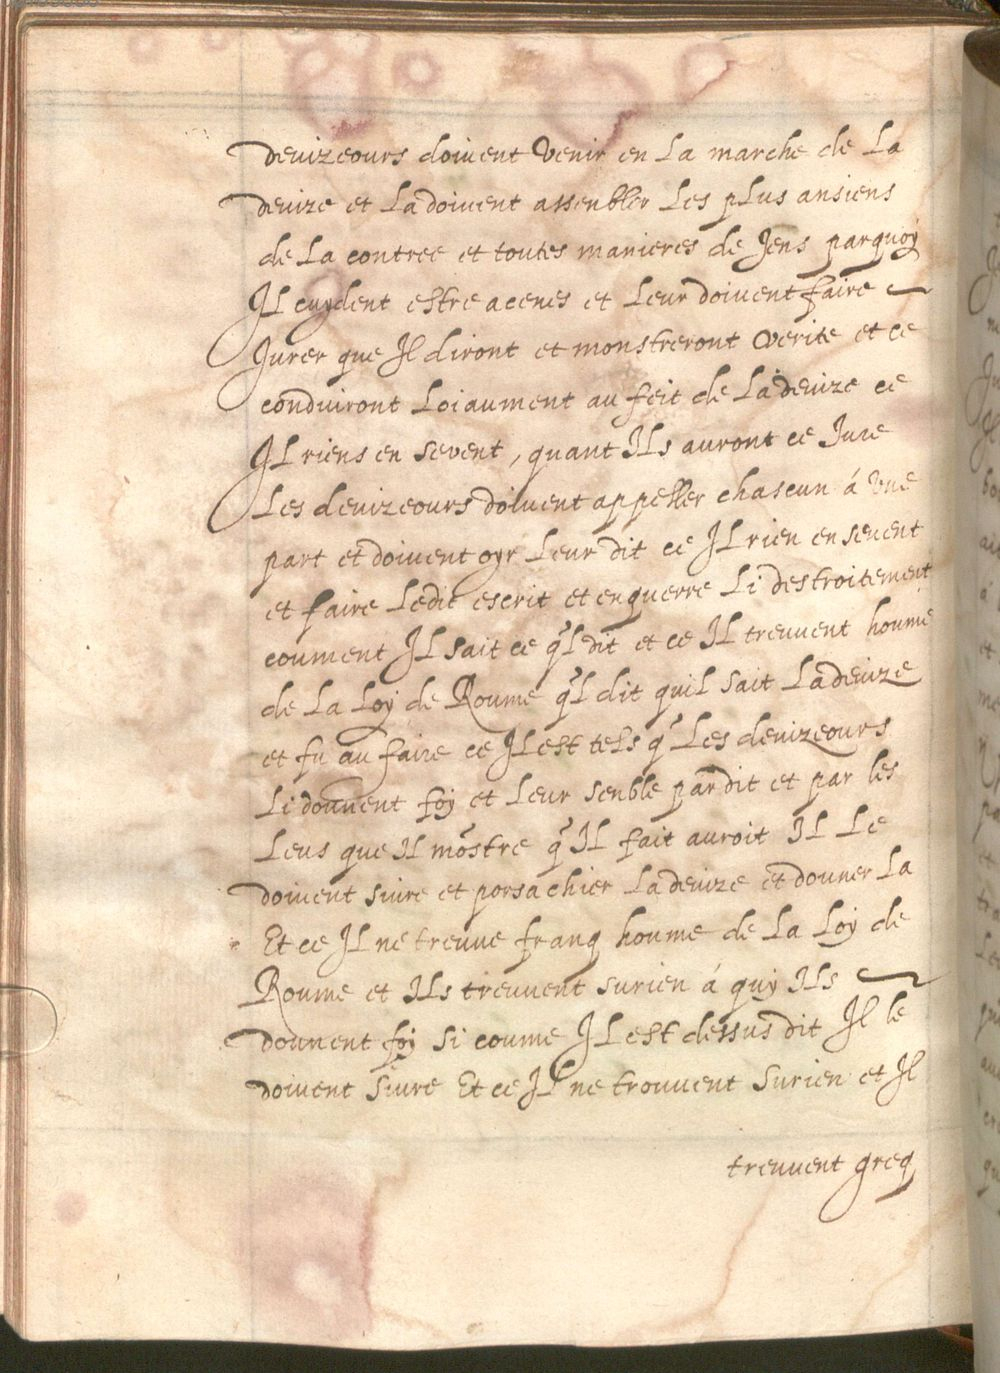 devizeours doivent venir en La marche de La
devize et La doivent assenbler Les plus ansiens
de La contree et toutes manieres de Jens parquoy
Il cuydent estre acenes et Leur doivent faire
Jurer que Il diront et monstreront verite et ce
conduiront Loiaument au feit de La devize ce
Il riens en sevent, quant Ils auront ce Jure
Les devizeours doivent appeller chascun á une
part et doivent oyr Leur dit ce Il rien en sevent
et faire Ledit escrit et enquerre Li destroitement
coument Il sait ce q̃l dit et ce Il treuvent houme
de La Loy de Roume q̃l dit quil sait La devize
et fu au faire ce Il est tels q̃ Les devizeours
Li donnent foy et Leur senble par dit et par les
Leus que Il mõstre q̃ Il fait auroit Il Le
doivent sivre et porsachier La devize et donner La
Et ce Il ne treuve franq houme de La Loy de
Roume et Ils treuvent surien á quy Ils
donnent foy si coume Il est dessus dit Il le
doivent sivre Et ce Il ne trouvent Surien et Il
treuvent greq